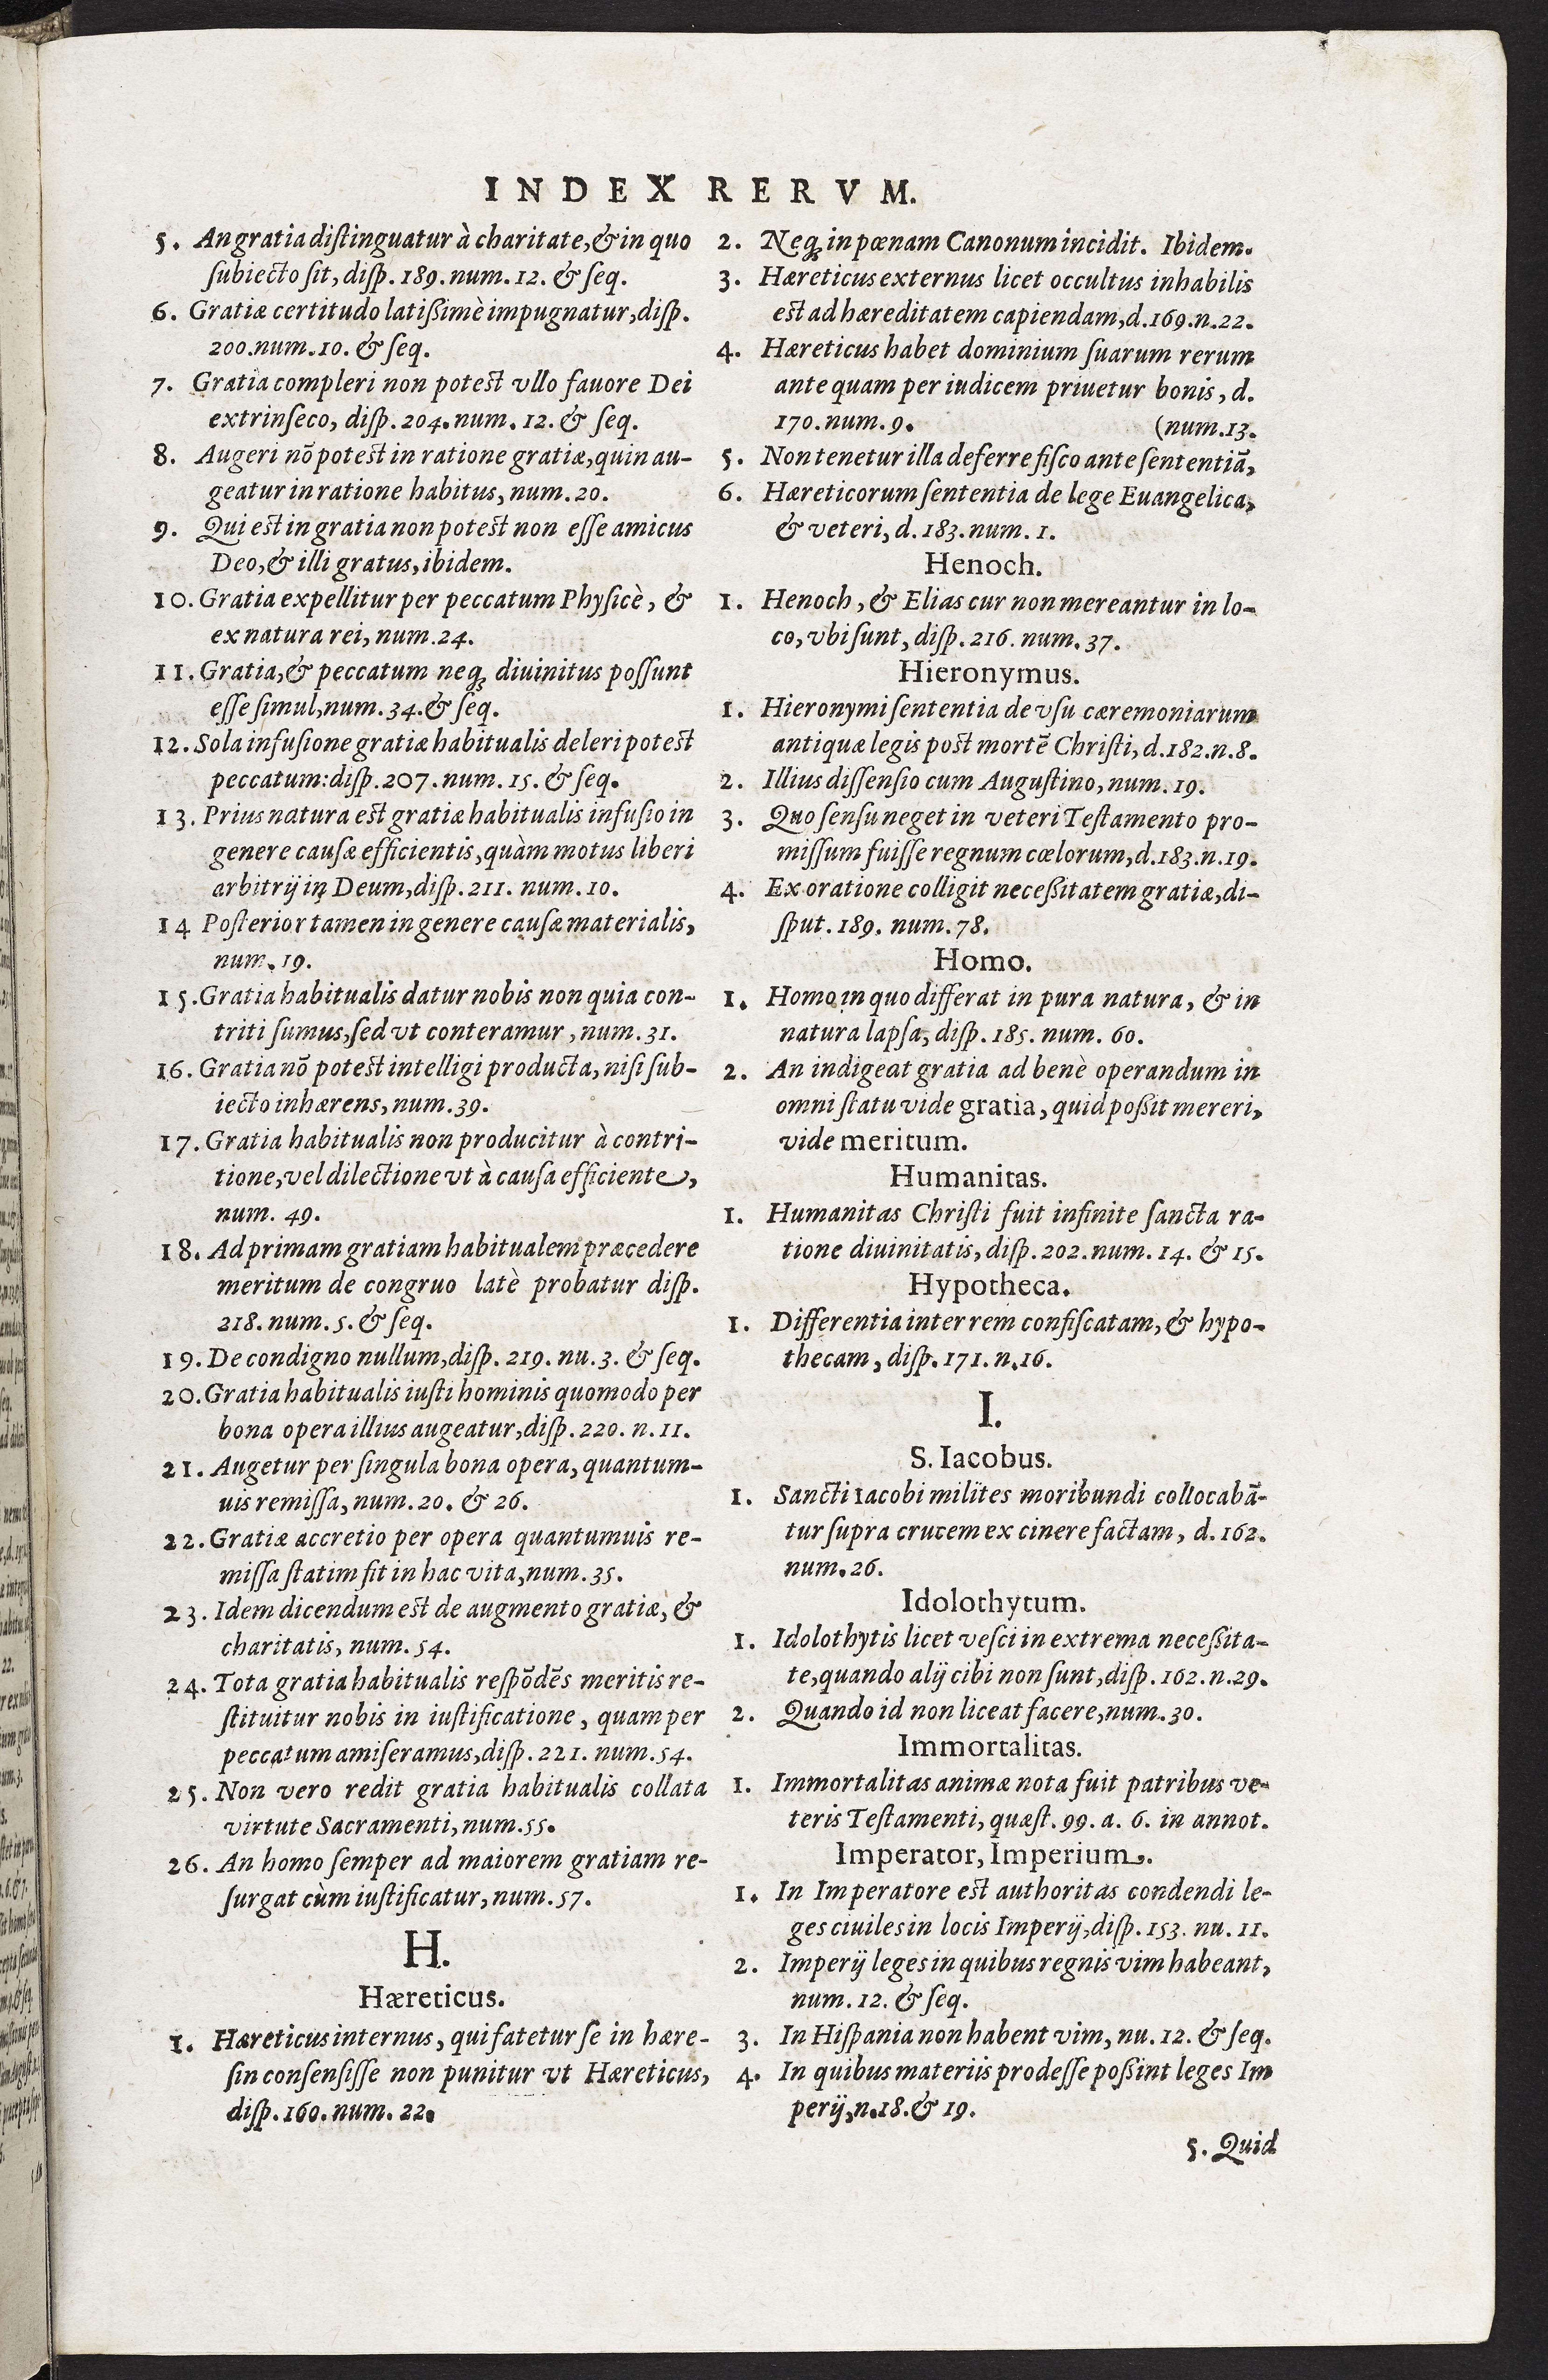 INDEX RERVM.
5. An gratia distinguatur à charitate, & in quo
subiecto sit, disp. 189. num. 12. & seq.
6. Gratiæ certitudo latißimè impugnatur, disp.
200. num. 10. & seq.
7. Gratia compleri non potest vllo fauore Dei
extrinseco, disp. 204. num. 12. & seq.
8. Augeri nõ potest in ratione gratiæ, quin au-
geatur in ratione habitus, num. 20.
9. Qui est in gratia non potest non esse amicus
Deo, & illi gratus, ibidem.
10. Gratia expellitur per peccatum Physicè, &
ex natura rei, num. 24.
11. Gratia, & peccatum neq; diuinitus possunt
esse simul, num. 34. & seq.
12. Sola infusione gratiæ habitualis deleri potest
peccatum: disp. 207. num. 15. & seq.
13. Prius natura est gratiæ habitualis infusio in
genere causæ efficientis, quàm motus liberi
arbitrij in Deum, disp. 211. num. 10.
14 Posterior tamen in genere causæ materialis,
num. 19.
15. Gratia habitualis datur nobis non quia con-
triti sumus, sed vt conteramur, num. 31.
16. Gratia nõ potest intelligi producta, nisi sub-
iecto inhærens, num. 39.
17. Gratia habitualis non producitur à contri-
tione, vel dilectione vt à causa efficiente,
num. 49.
18. Ad primam gratiam habitualem præcedere
meritum de congruo latè probatur disp.
218. num. 5. & seq.
19. De condigno nullum, disp. 219. nu. 3. & seq.
20. Gratia habitualis iusti hominis quomodo per
bona opera illius augeatur, disp. 220. n. 11.
21. Augetur per singula bona opera, quantum-
uis remissa, num. 20. & 26.
22. Gratiæ accretio per opera quantumuis re-
missa statim fit in hac vita, num. 35.
23. Idem dicendum est de augmento gratiæ, &
charitatis, num. 54.
24. Tota gratia habitualis respõdẽs meritis re-
stituitur nobis in iustificatione, quam per
peccatum amiseramus, disp. 221. num. 54.
25. Non vero redit gratia habitualis collata
virtute Sacramenti, num. 55.
26. An homo semper ad maiorem gratiam re-
surgat cùm iustificatur, num. 57.
H.
Hæreticus.
1. Hæreticus internus, qui fatetur se in hære-
sin consensisse non punitur vt Hæreticus,
disp. 160. num. 22.
2. Neq; in pœnam Canonum incidit. Ibidem.
3. Hæreticus externus licet occultus inhabilis
est ad hæreditatem capiendam, d. 169. n. 22.
4. Hæreticus habet dominium suarum rerum
ante quam per iudicem priuetur bonis, d.
170. num. 9. (num. 13.
5. Non tenetur illa deferre fisco ante sententiã,
6. Hæreticorum sententia de lege Euangelica,
& veteri, d. 183. num. 1.
Henoch.
1. Henoch, & Elias cur non mereantur in lo-
co, vbi sunt, disp. 216. num. 37.
Hieronymus.
1. Hieronymi sententia de vsu cæremoniarum
antiquæ legis post mortẽ Christi, d. 182. n. 8.
2. Illius dissensio cum Augustino, num. 19.
3. Quo sensu neget in veteri Testamento pro-
missum fuisse regnum cœlorum, d. 183. n. 19.
4. Ex oratione colligit neceßitatem gratiæ, di-
sput. 189. num. 78.
Homo.
1. Homo in quo differat in pura natura, & in
natura lapsa, disp. 185. num. 60.
2. An indigeat gratia ad benè operandum in
omni statu vide gratia, quid poßit mereri,
vide meritum.
Humanitas.
1. Humanitas Christi fuit infinite sancta ra-
tione diuinitatis, disp. 202. num. 14. & 15.
Hypotheca.
1. Differentia inter rem confiscatam, & hypo-
thecam, disp. 171. n. 16.
I.
S. Iacobus.
1. Sancti Iacobi milites moribundi collocabã-
tur supra crucem ex cinere factam, d. 162.
num. 26.
Idolothytum.
1. Idolothytis licet vesci in extrema neceßita-
te, quando alij cibi non sunt, disp. 162. n. 29.
2. Quando id non liceat facere, num. 30.
Immortalitas.
1. Immortalitas animæ nota fuit patribus ve-
teris Testamenti, quæst. 99. a. 6. in annot.
Imperator, Imperium.
1. In Imperatore est authoritas condendi le-
ges ciuiles in locis Imperij, disp. 153. nu. 11.
2. Imperij leges in quibus regnis vim habeant,
num. 12. & seq.
3. In Hispania non habent vim, nu. 12. & seq.
4. In quibus materiis prodesse poßint leges Im
perij, n. 18. & 19.
5. Quid